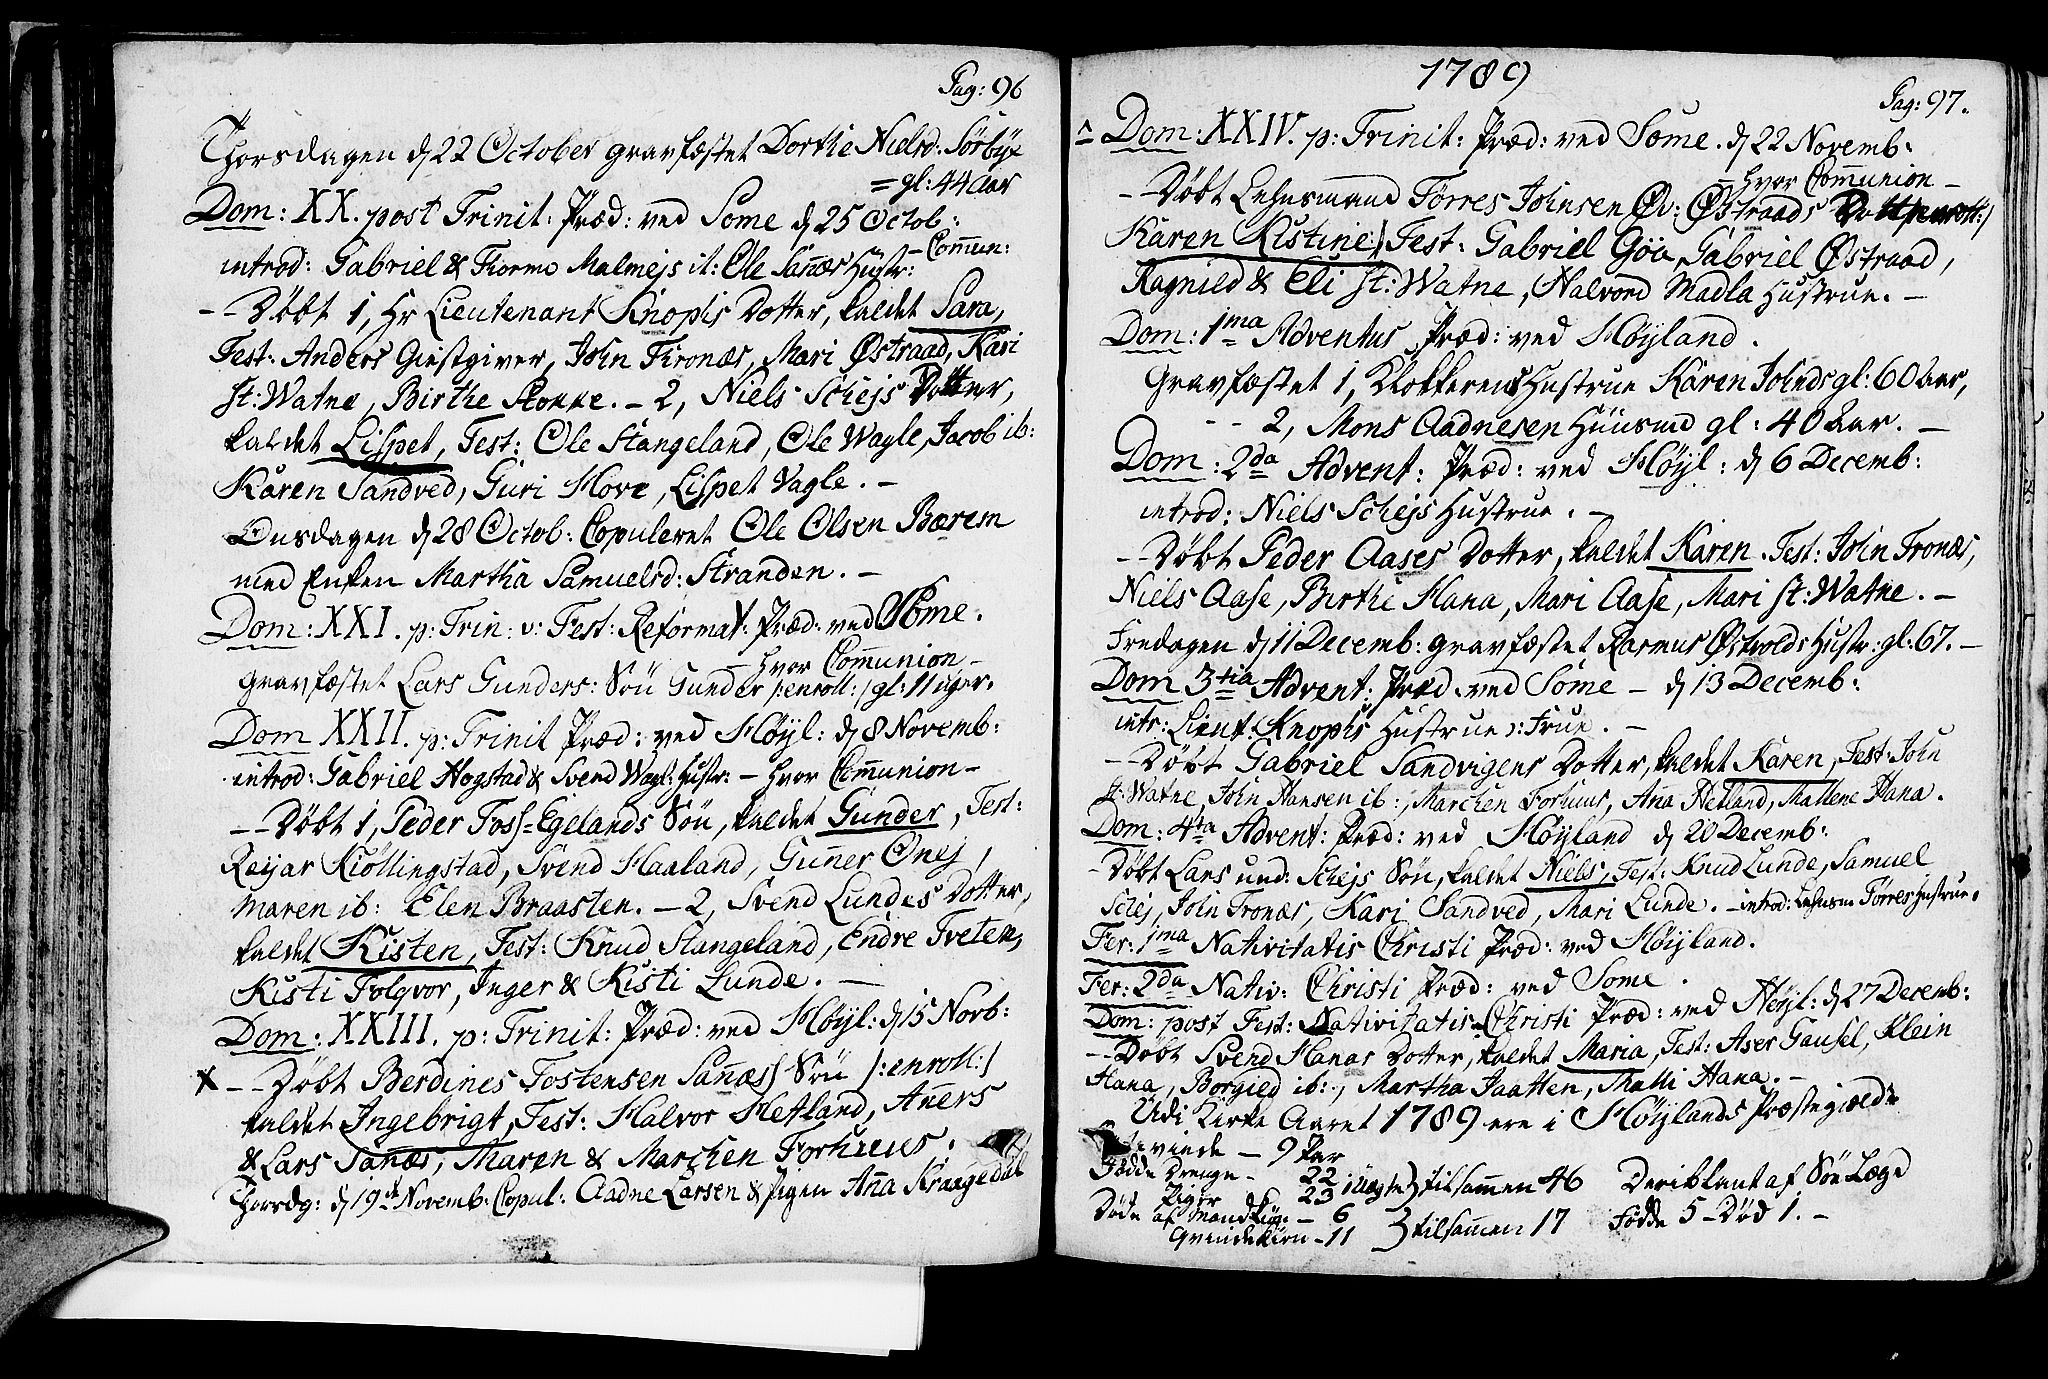 Pag: 96
Thorsdagen d 22 October gravfæstet Dorthe Nielsd: Sörbÿe
= gl: 44 Aar
Dom: XX. post Trinit: Præd: ved Some d 25 Octob:
- Commun:
introd: Gabriel & Thormo Malmejs it: Ole Sañæs Hustr:
-- Döbt 1, Hr Lieutenant Knophs Dotter, kaldet Sara,
Test: Anders Giestgiver, John Tronæs, Mari Østraad, Kari
st: Watne, Birthe Rokke. - 2, Niels Schejs Dotter,
kaldet Lispet, Test: Ole Stangeland, Ole Wagle, Jacob ib:
Karen Sandved, Guri Hove, Lispet Vagle. -
Onsdagen d 28 Octob: Copuleret Ole Olsen Bærem
med Enken Martha Samuelsd: Stranden. -
Dom: XXI. p: Trin: v: Fest: Reformat: Præd: ved Some.
- hvor Comunion -
gravfæstet Lars Gunders: Sön Gunder /: enroll: / gl: 11 uger.
Dom XXII. p: Trinit Præd: ved Höyl: d 8 Novemb:
introd: Gabriel Hogstad & Svend Wagl: Hustr: - hvor Comunion -
-- Döbt 1, Peder Foss=Egelands Sön, kaldet Gunder, Test:
Reijar Kiöllingstad, Svend Haaland, Guñer Onej,
Maren ib: Elen Braasten. - 2, Svend Lundes Dotter,
kaldet Kisten, Test: Knud Stangeland, Endre Tveten,
Kisti Folqvor, Inger & Kisti Lunde. -
Dom: XXIII. p: Trinit: Præd: ved Höyl: d 15 Novb:
x -- Döbt Berdines Tostensen Sañæs Sön /: enroll: /
kaldet Ingebrigt, Test: Halvor Hetland, Añers
& Lars Sañæs, Maren & Marchen Forhuus.
Thorsdg: d 19de Novemb: Copul: Aadne Larsen & Pigen Aña Kraagedal
1789
Pag: 97.
Dom: XXIV. p: Trinit: Præd: ved Some. d 22 Novemb:
- hvor Comunion -
- Döbt Lehnsmand Törres Johnsen Öv: Østraads Dotter
Karen Kistine, Test: Gabriel Göa, Gabriel Østraad,
Ragnild & Eli st: Watne, Halvord Madla Hustrue. -
Dom: 1ma Adventus Præd: ved Höyland.
gravfæstet 1, Klokkerens Hustrue Karen Johnds gl: 60 Aar,
-- 2, Mons Aadnesen Huusmd gl: 40 Aar. -
Dom: 2da Advent: Præd: ved Höyl: d 6 Decemb:
introd: Niels Schejs Hustrue. -
- Döbt Peder Aases Dotter, kaldet Karen. Test: John Tronæs,
Niels Aase, Birthe Hana, Mari Aase, Mari st: Watne. -
Fredagen d 11 Decemb: gravfæstet Rasmus Østvolds Hustr: gl: 67. -
Dom 3tia Advent: Præd: ved Some - d 13 Decemb:
intr: Lieut: Knophs Hustrue v: Frue. -
-- Döbt Gabriel Sandvigens Dotter, kaldet Karen, Test: John
st: Watne, John Hansen ib:, Marchen Forhuus, Aña Hetland, Mallene Hana.
Dom: 4ta Advent: Præd: ved Höyland d 20 Decemb:
- Döbt Lars und: Schejs Sön, kaldet Niels, Test: Knud Lunde, Samuel
Schej, John Tronæs, Kari Sandved, Mari Lunde. - introd: Lehnsm Törres Hustrue.
Fer: 1ma Nativitatis Christi Præd: ved Höyland.
Fer: 2da Nativ: Christi Præd: ved Some.
Dom: post Fest: Nativitatis Christi Præd: ved Höyl: d 27 Decemb:
-- Döbt Svend Hanas Dotter, kaldet Maria, Test: Aser Gausel, Klein
Hana, Borgied ib:, Martha Jaatten, Malli Hana. -
Udi Kirke Aaret 1789 ere i Höylands Præstegield
viede - 9 Par
Födde Drenge - 22 1 Uægte } tilsamen 46 Deriblant af Söe Læge
Piger 23
Döde af Mandkiön - 6 } tilsamen 17 Födde 5 - Död 1. -
Qvindekiön - 11